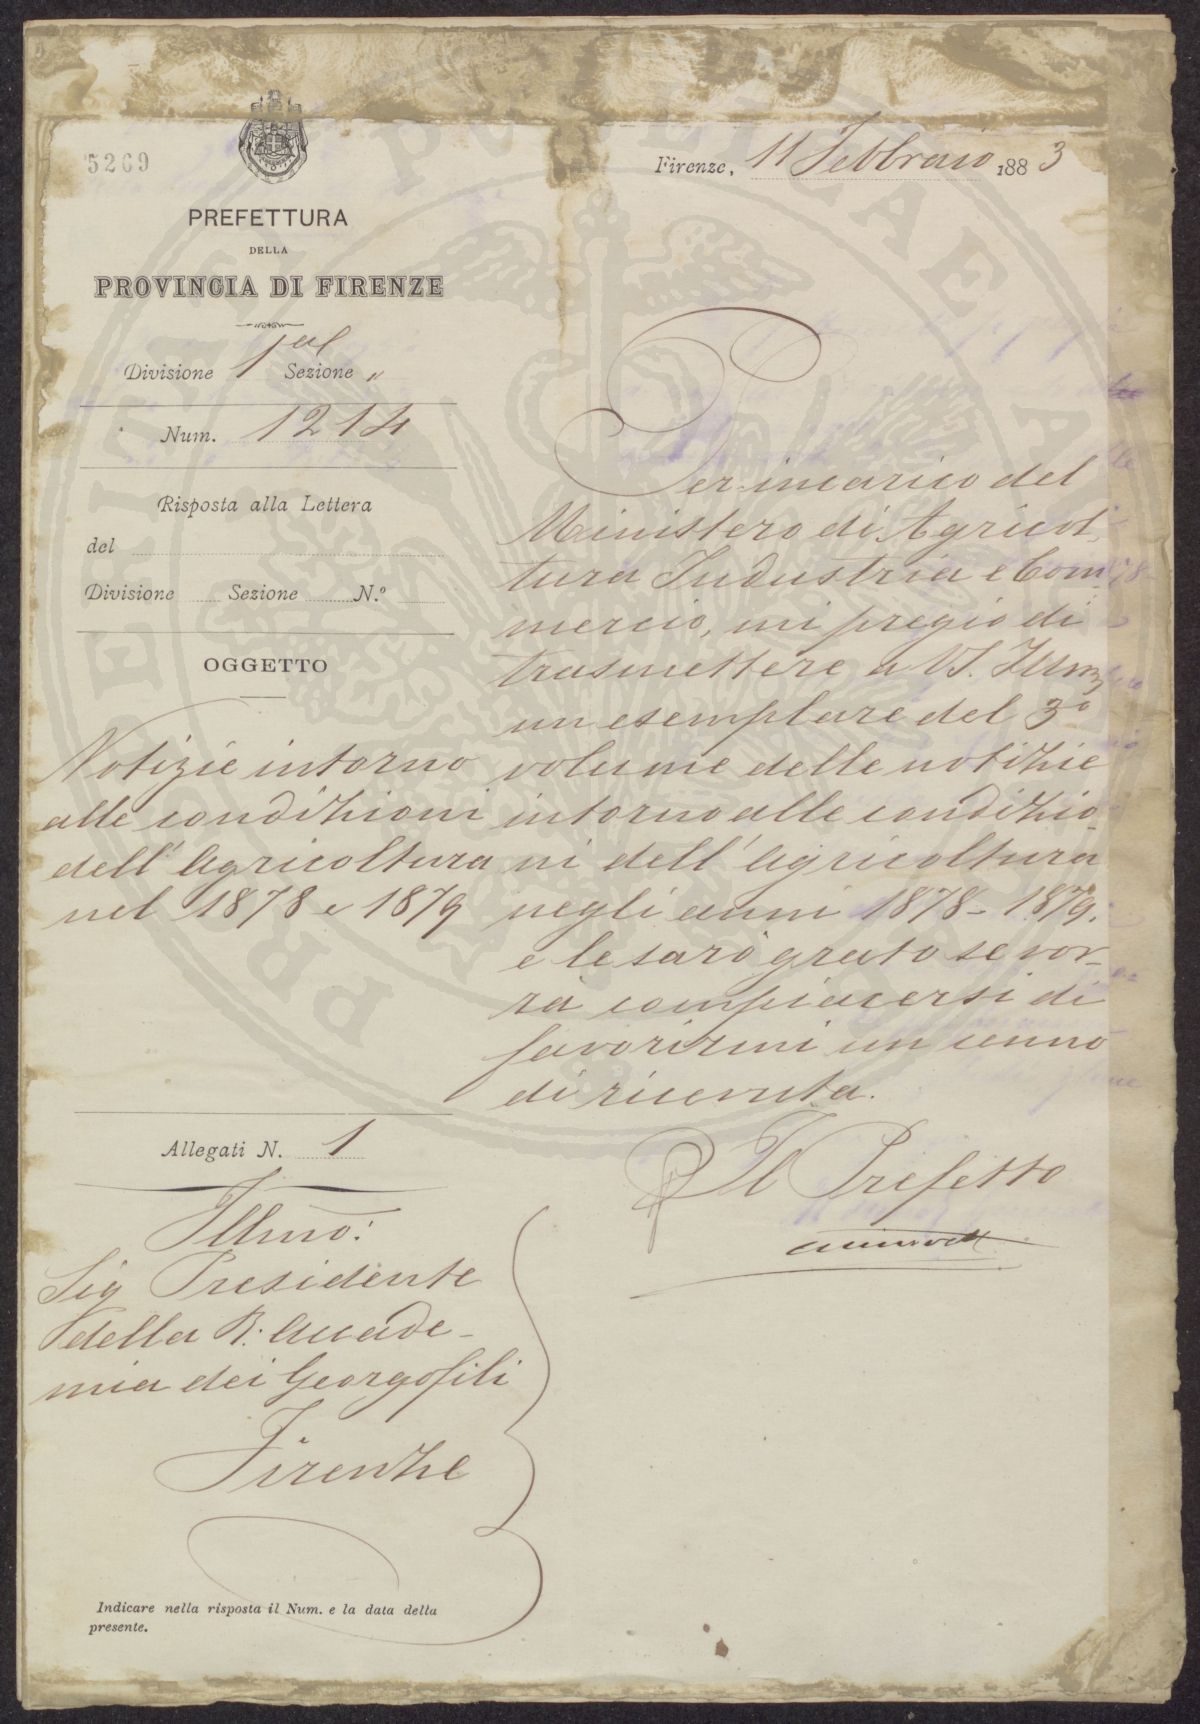 5269
Firenze, 11 Febbraio 1883
PREFETTURA
DELLA
PROVINCIA DI FIRENZE
Divisione 1ª Sezione "
Num. 1214
Risposta alla Lettera
del
Divisione Sezione N.º
OGGETTO
Notizie intorno
alle condizioni
dell'Agricoltura
nel 1878 e 1879
Allegati N. 1
Illmo:
Sig Presidente
della R. Accade-
mia dei Georgofili
Firenze
Indicare nella risposta il Num. e la data della
presente.
Per incarico del
Ministero di Agricol-
tura Industria e Com-
mercio, mi pregio di
trasmettere a VS. Illma
un esemplare del 3º
volume delle notizie
intorno alle condizio-
ni dell'Agricoltura
negli anni 1878-1879.
e le sarò grato se vor-
rà compiacersi di
favorirmi un cenno
di ricevuta.
Il Prefetto